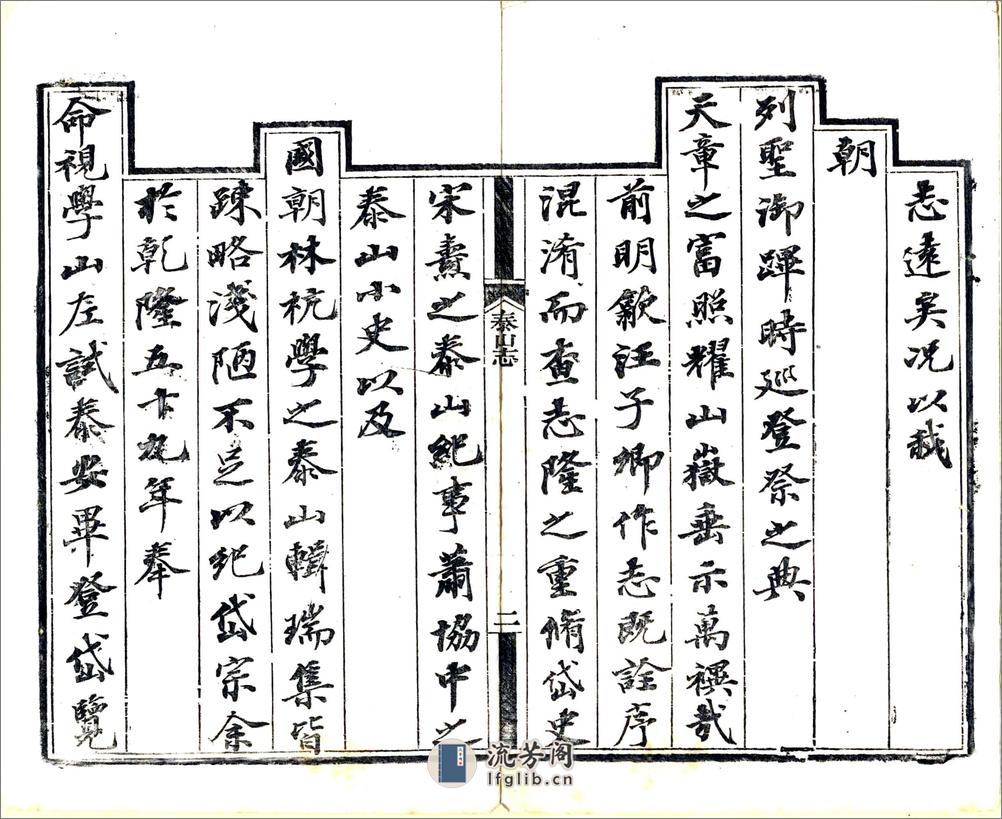 志遠矣况以我
朝
列聖御蹕時廵登祭之典
天章之富照耀山嶽垂示萬禩哉
前明歙汪子卿作志既詮序
混淆而查志隆之重脩岱史
泰山志
二
宋燾之泰山紀事蕭協中之
泰山小史以及
國朝林杭學之泰山輯瑞集皆
踈略淺陋不足以紀岱宗余
於乾隆五十九年奉
命視學山左試泰安畢登岱覽
流芳阁
lfglib.cn